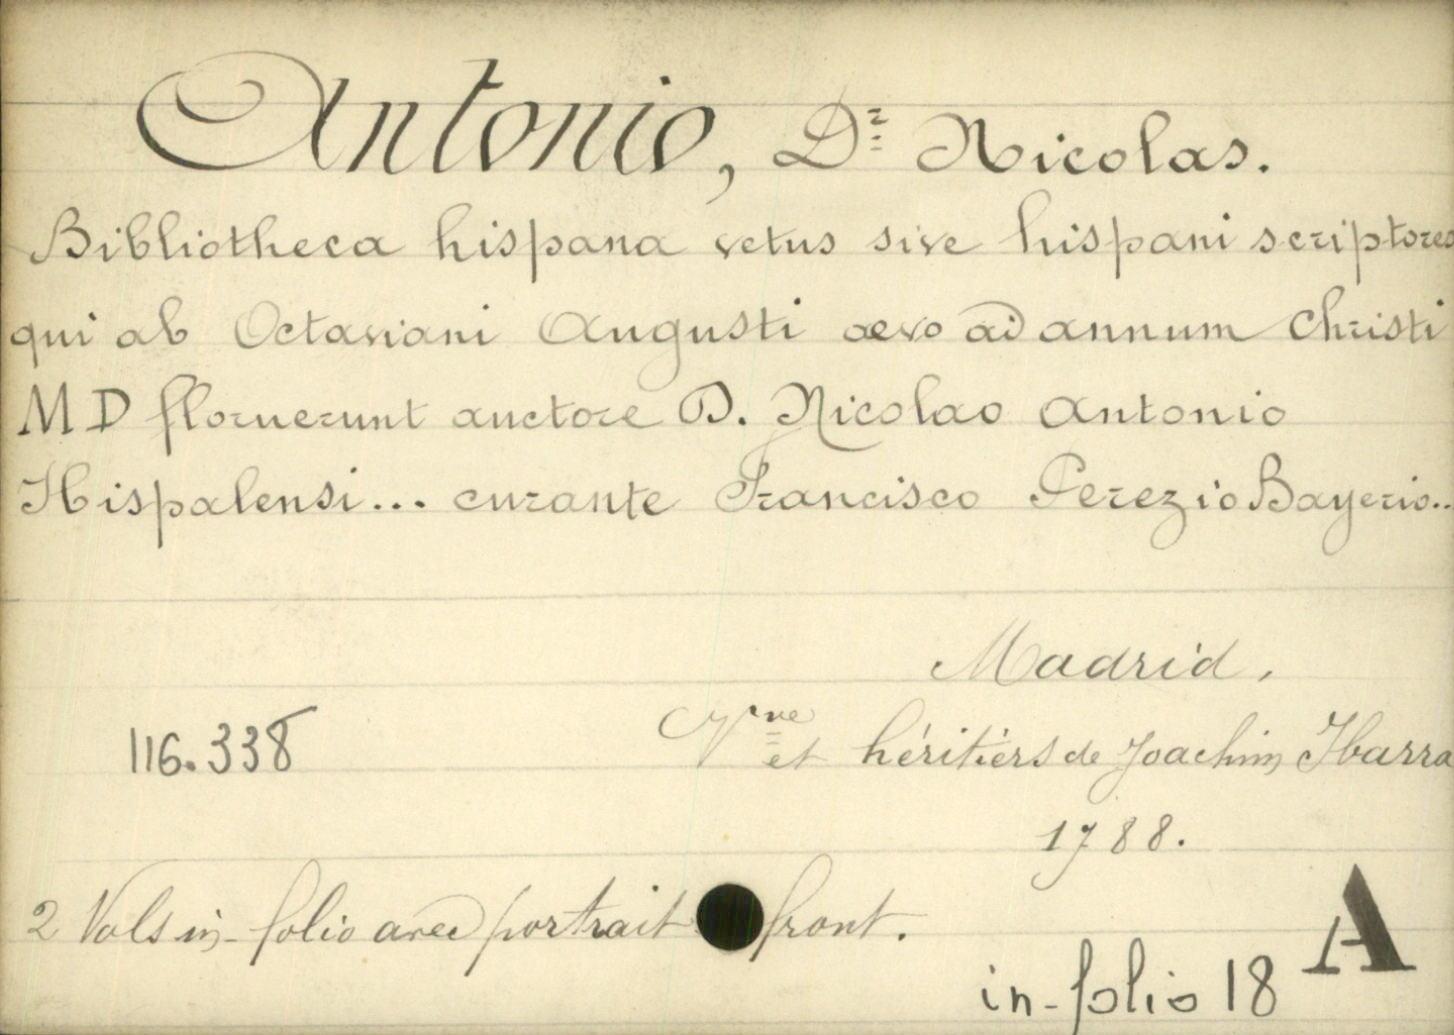 Antonio, Dr Nicolas.
Bibliotheca hispana vetus sive hispani scriptores
qui ab Octaviani Augusti aevo ad annum Christi
MD floruerunt auctore D. Nicolao Antonio
Hispalensi... curante Francisco Perezio Bayerio..
Madrid.
116.338
Vve et héritiers de Joachim Ibarra
1788.
2 Vols in-folio avec portrait front.
in-folio 18 A